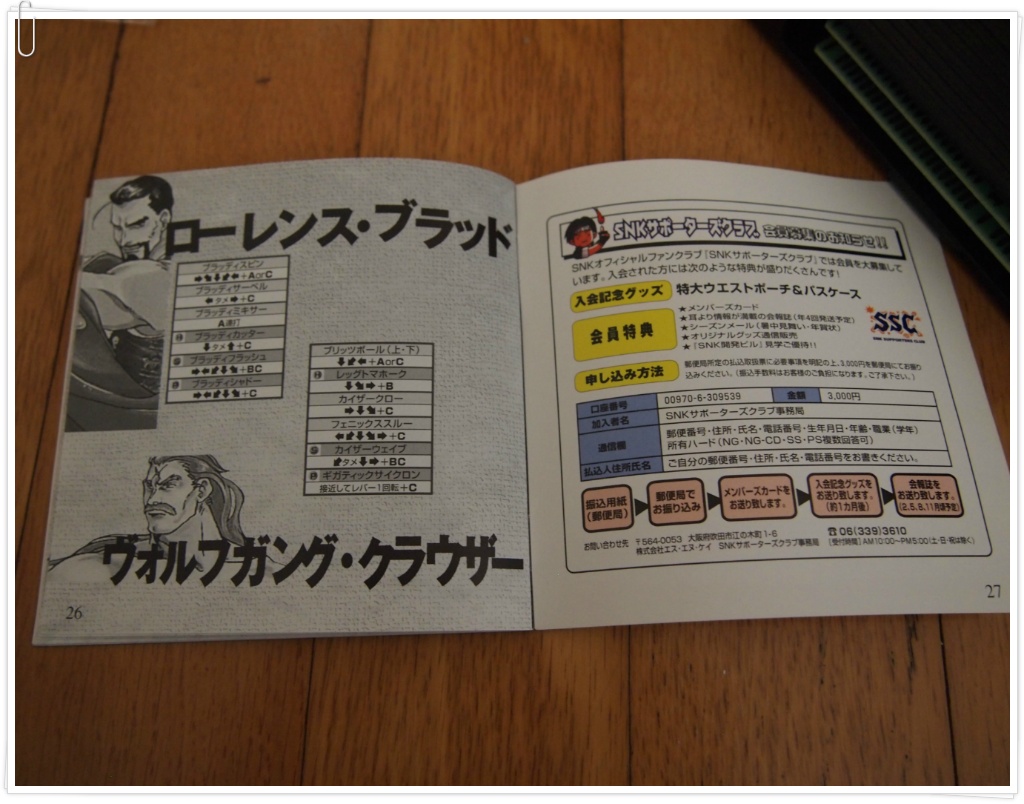 ローレンス・ブラッド
ブラッディスピン
➡⬊⬇⬋⬅+AorC
ブラッディサーベル
⬅タメ➡+C
ブラッディミキサー
A連打
ブラッディカッター
⬇タメ⬆+C
ブラッディフラッシュ
+BC
ブラッディシャドー
+C
ブリッツボール(上・下)
⬇⬋⬅+AorC
レッグトマホーク
⬇⬊➡+B
カイザークロー
➡⬇⬊+C
フェニックススルー
⬅⬋⬇⬊➡+C
カイザーウェイブ
⬋タメ⬇➡+BC
ギガティックサイクロン
接近してレバー1回転+C
ヴォルフガング・クラウザー
26
SNKサポーターズクラブ 会員募集のお知らせ!!
SNKオフィシャルファンクラブ「SNKサポーターズクラブ」では会員を大募集して
います。入会された方には次のような特典が盛りだくさんです!
入会記念グッズ 特大ウエストポーチ&パスケース
会員特典
★メンバーズカード
★耳より情報が満載の会報誌(年4回発送予定)
★シーズンメール(暑中見舞い・年賀状)
★オリジナルグッズ通信販売
★「SNK開発ビル」見学ご優待!!
SSC
SNK SUPPORTERS CLUB
申し込み方法
郵便局所定の払込取扱票に必要事項を明記の上、3,000円を郵便局にてお振り
込みください。(振込手数料はお客様のご負担になります。ご了承下さい。)
口座番号 00970-6-309539 金額 3,000円
加入者名 SNKサポーターズクラブ事務局
通信欄 郵便番号・住所・氏名・電話番号・生年月日・年齢・職業(学年)
所有ハード(NG・NG-CD・SS・PS複数回答可)
払込人住所氏名 ご自分の郵便番号・住所・氏名・電話番号をお書きください。
振込用紙
(郵便局)
郵便局で
お振り込み
メンバーズカードを
お送り致します。
入会記念グッズを
お送り致します。
(約1カ月後)
会報誌を
お送り致します。
(2.5.8.11月頃予定)
お問い合わせ先 〒564-0053 大阪府吹田市江の木町1-6
株式会社エス・エヌ・ケイ SNKサポーターズクラブ事務局
☎06(339)3610
(受付時間)AM10:00〜PM5:00(土・日・祝は除く)
27